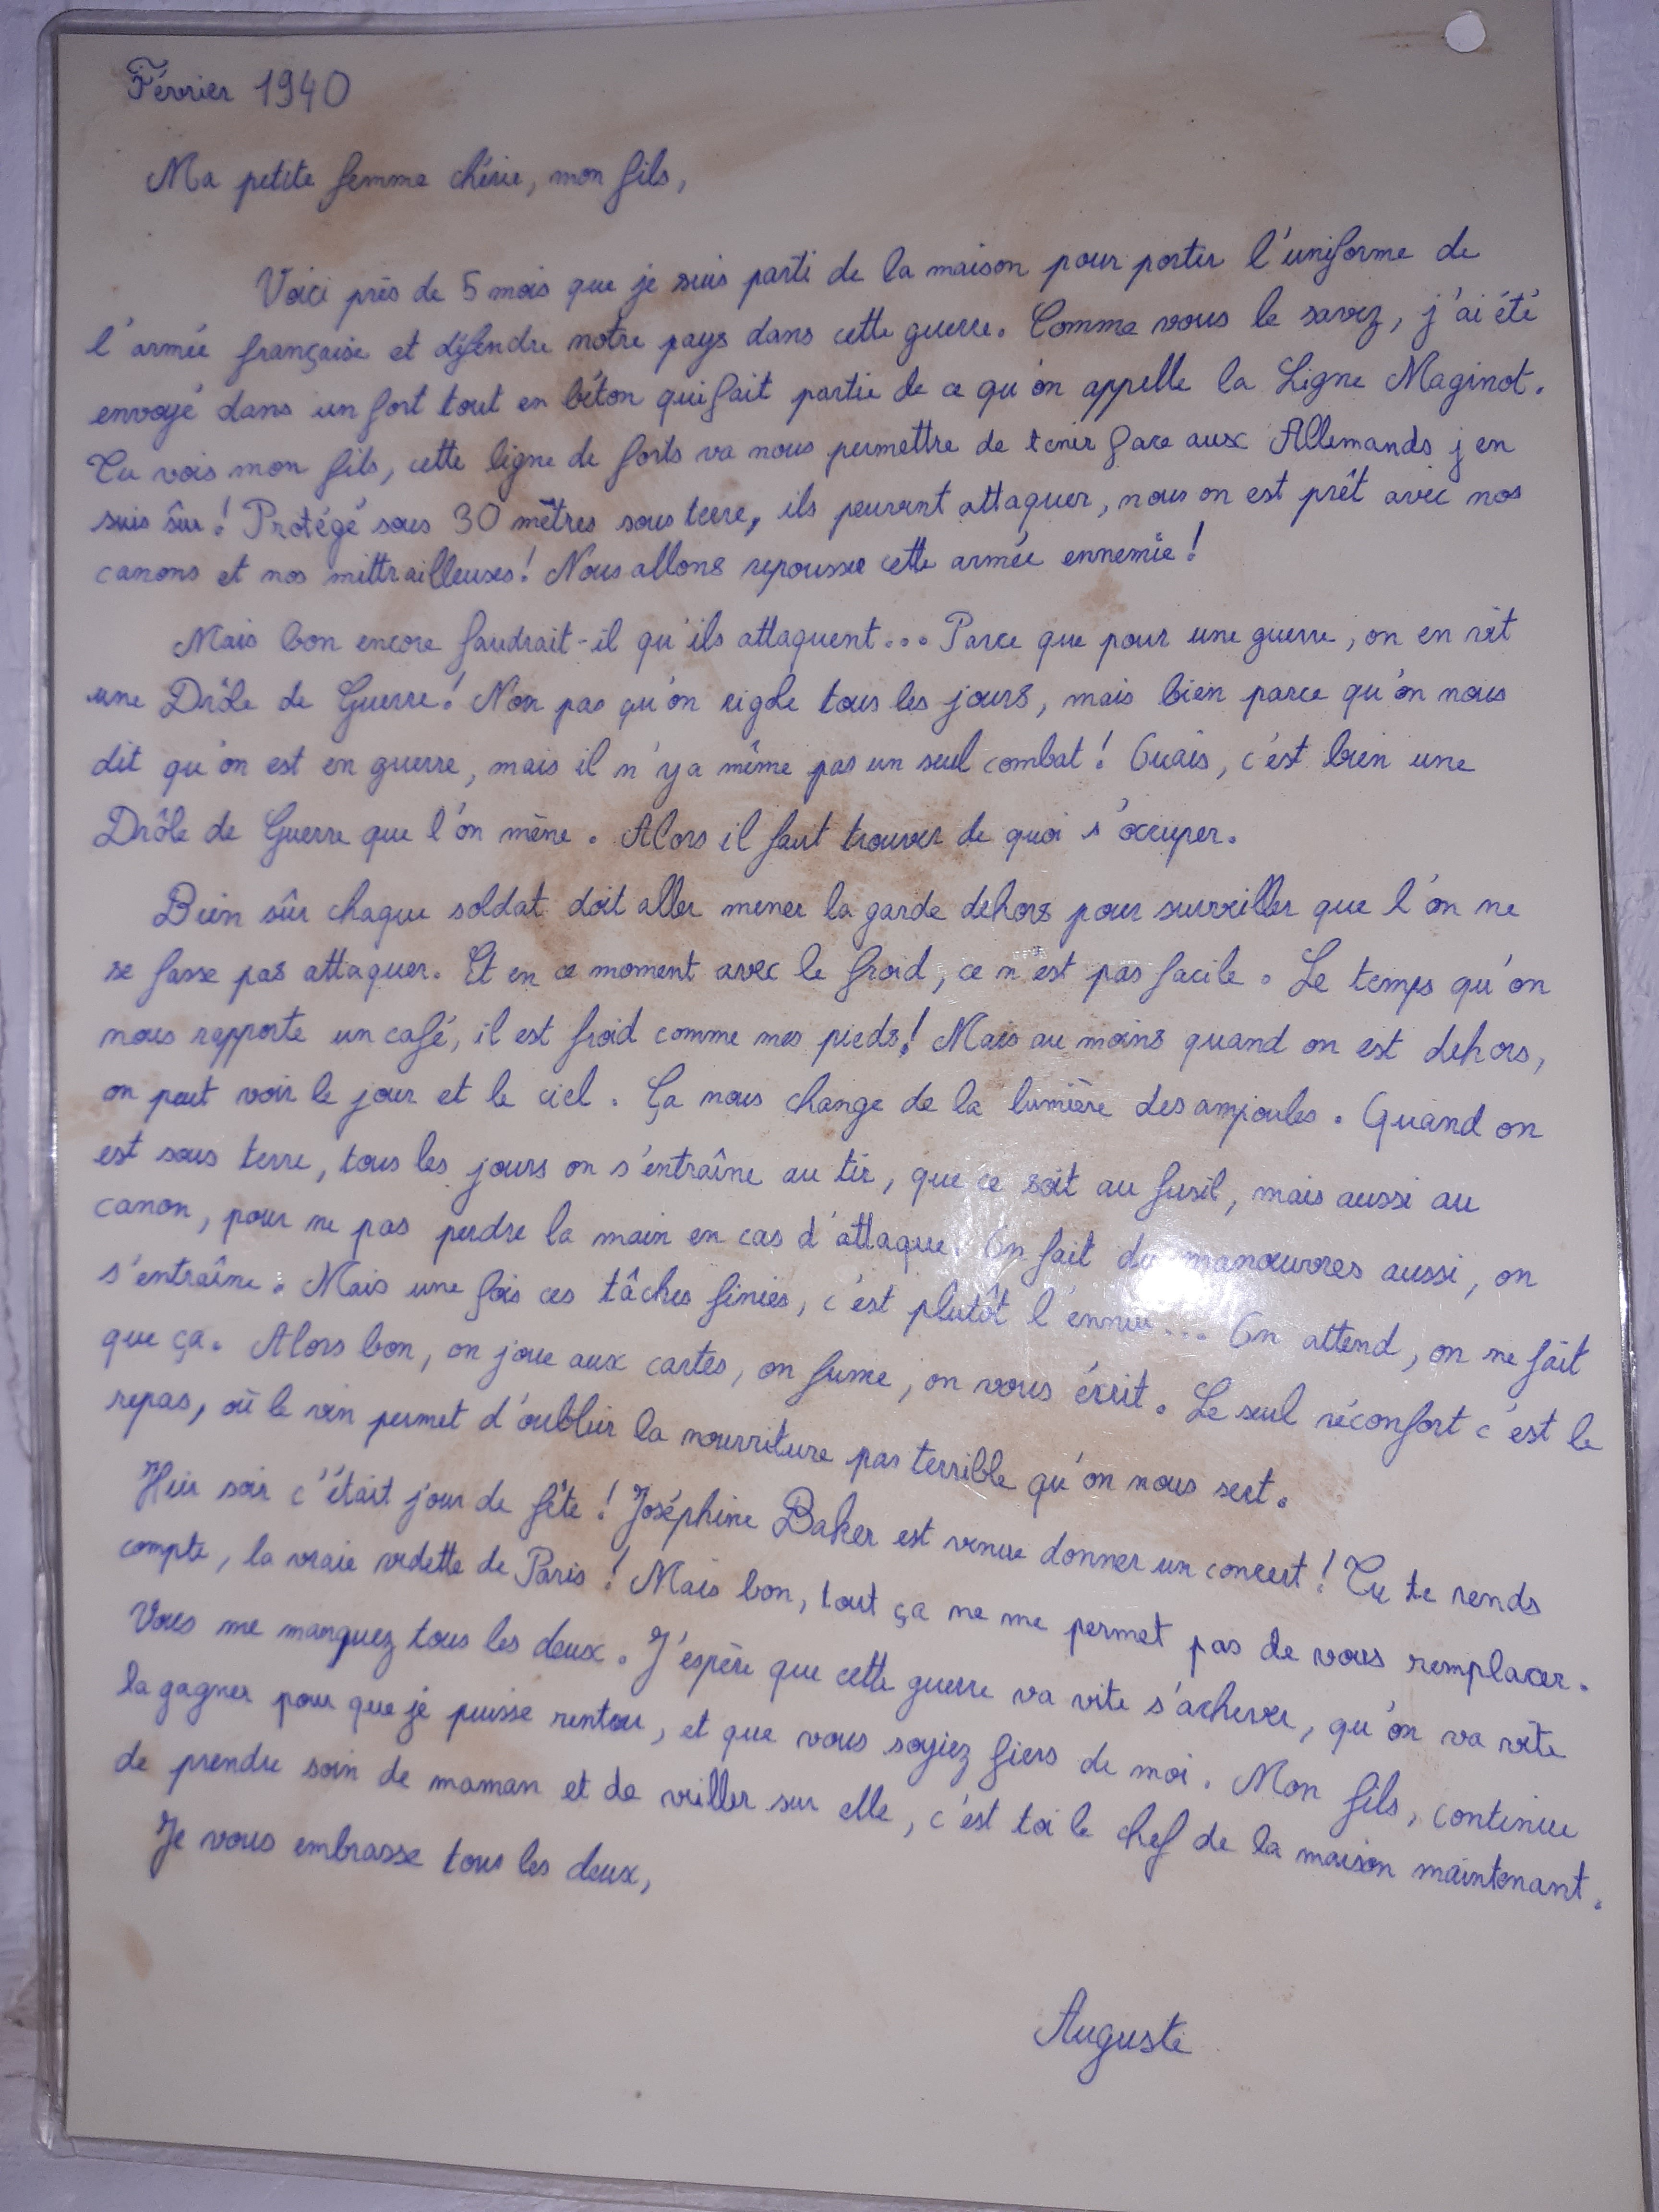 Février 1940
Ma petite femme chérie, mon fils,
Voici près de 5 mois que je suis parti de la maison pour porter l'uniforme de
l'armée française et défendre notre pays dans cette guerre. Comme vous le savez, j'ai été
envoyé dans un fort tout en béton qui fait partie de ce qu'on appelle la Ligne Maginot.
Tu vois mon fils, cette ligne de forts va nous permettre de tenir face aux Allemands j'en
suis sûr ! Protégé sous 30 mètres sous terre, ils peuvent attaquer, nous on est prêt avec nos
canons et nos mittrailleuses ! Nous allons repousser cette armée ennemie !
Mais bon encore faudrait-il qu'ils attaquent... Parce que pour une guerre, on en vit
une Drôle de Guerre ! Non pas qu'on rigole tous les jours, mais bien parce qu'on nous
dit qu'on est en guerre, mais il n'y a même pas un seul combat ! Ouais, c'est bien une
Drôle de Guerre que l'on mène. Alors il faut trouver de quoi s'occuper.
Bien sûr chaque soldat doit aller mener la garde dehors pour surveiller que l'on ne
se fasse pas attaquer. Et en ce moment avec le froid, ce n'est pas facile. Le temps qu'on
nous rapporte un café, il est froid comme mes pieds ! Mais au moins quand on est dehors,
on peut voir le jour et le ciel. Ça nous change de la lumière des ampoules. Quand on
est sous terre, tous les jours on s'entraîne au tir, que ce soit au fusil, mais aussi au
canon, pour ne pas perdre la main en cas d'attaque. On fait des manœuvres aussi, on
s'entraîne. Mais une fois ces tâches finies, c'est plutôt l'ennui... On attend, on ne fait
que ça. Alors bon, on joue aux cartes, on fume, on vous écrit. Le seul réconfort c'est le
repas, où le vin permet d'oublier la nourriture pas terrible qu'on nous sert.
Hier soir c'était jour de fête ! Joséphine Baker est venue donner un concert ! Tu te rends
compte, la vraie vedette de Paris ! Mais bon, tout ça ne me permet pas de vous remplacer.
Vous me manquez tous les deux. J'espère que cette guerre va vite s'achever, qu'on va vite
la gagner pour que je puisse rentrer, et que vous soyiez fiers de moi. Mon fils, continue
de prendre soin de maman et de veiller sur elle, c'est toi le chef de la maison maintenant.
Je vous embrasse tous les deux,
Auguste